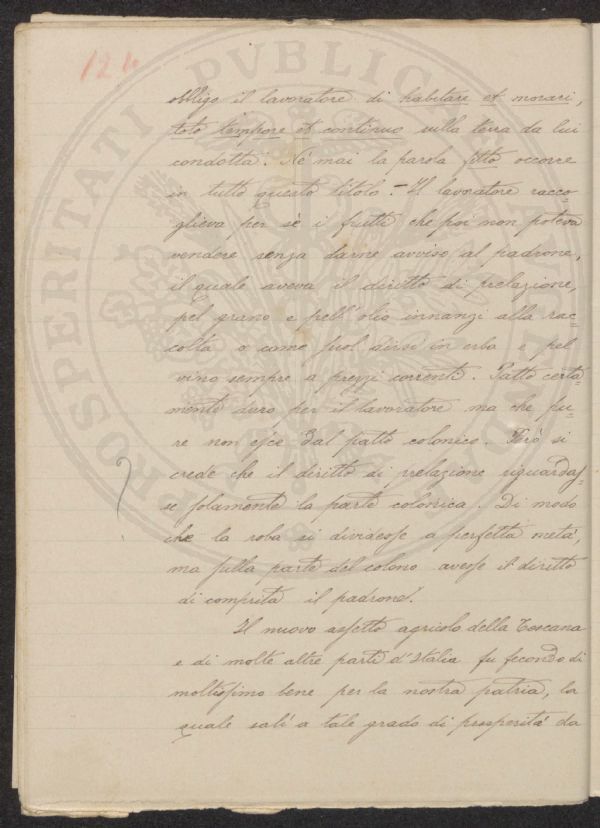 124
obbligo il lavoratore di habitare et morari,
toto tempore et continuo sulla terra da lui
condotta. Nè mai la parola fitto occorre
in tutto questo titolo. – Il lavoratore racco-
glieva per sè i frutti che poi non poteva
vendere senza darne avviso al padrone,
il quale aveva il diritto di prelazione,
pel grano e pell'olio innanzi alla rac-
colta o come suol dirsi in erba e pel
vino sempre a prezzi correnti. Patto certa-
mente duro per il lavoratore ma che pu-
re non esce dal patto colonico. Però si
crede che il diritto di prelazione riguardas-
se solamente la parte colonica. Di modo
che la roba si dividesse a perfetta metà,
ma sulla parte del colono avesse il diritto
di comprita il padrone.
Il nuovo assetto agricolo della Toscana
e di molte altre parti d'Italia fu fecondo di
moltissimo bene per la nostra patria, la
quale salì a tale grado di prosperità da
?
PROSPERITATI PUBLICAE